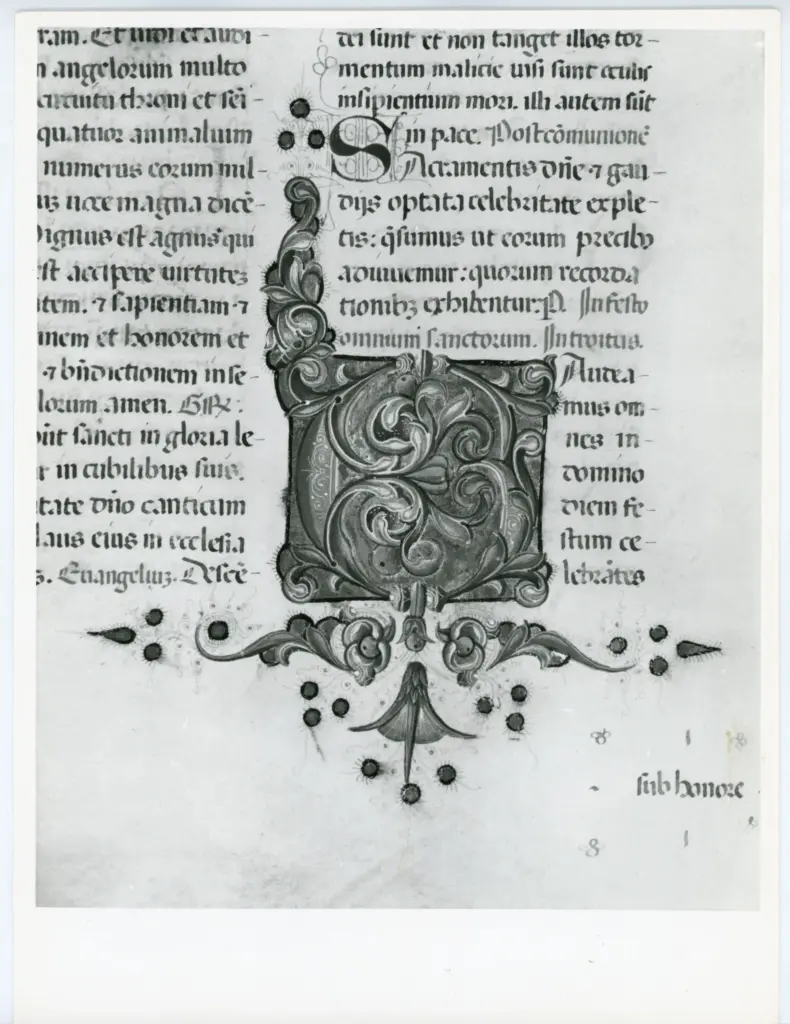 ram. Et uidi et audi-
n angelorum multo
circuitu throni et sēi-
quatuor animalium
numerus eorum mil-
us uoce magna dicē-
Dignus est agnus qui
est accipere uirtutez
item. ⁊ sapientiam ⁊
inem et honorem et
⁊ bn̄dictionem in se-
lorum. amen. GR:
sancti in gloria le-
r in cubilibus suis.
tate dn̄o canticum
laus eius in ecclesia
s. Euangeliuz. Descē-
dei sunt et non tanget illos tor-
mentum malicie uisi sunt oculis
insipientium mori. illi autem sūt
in pace. Postcōmunionē
SAcramentis dn̄e ⁊ gau-
dijs optata celebritate exple-
tis: q̄sumus ut eorum precibꝫ
adiuuemur: quorum recorda
tionibꝫ exhibentur. P. In festo
omnium sanctorum. Introitus.
GAudea-
mus om-
nes in
domino
diem fe-
stum ce-
lebrātes
sub honore